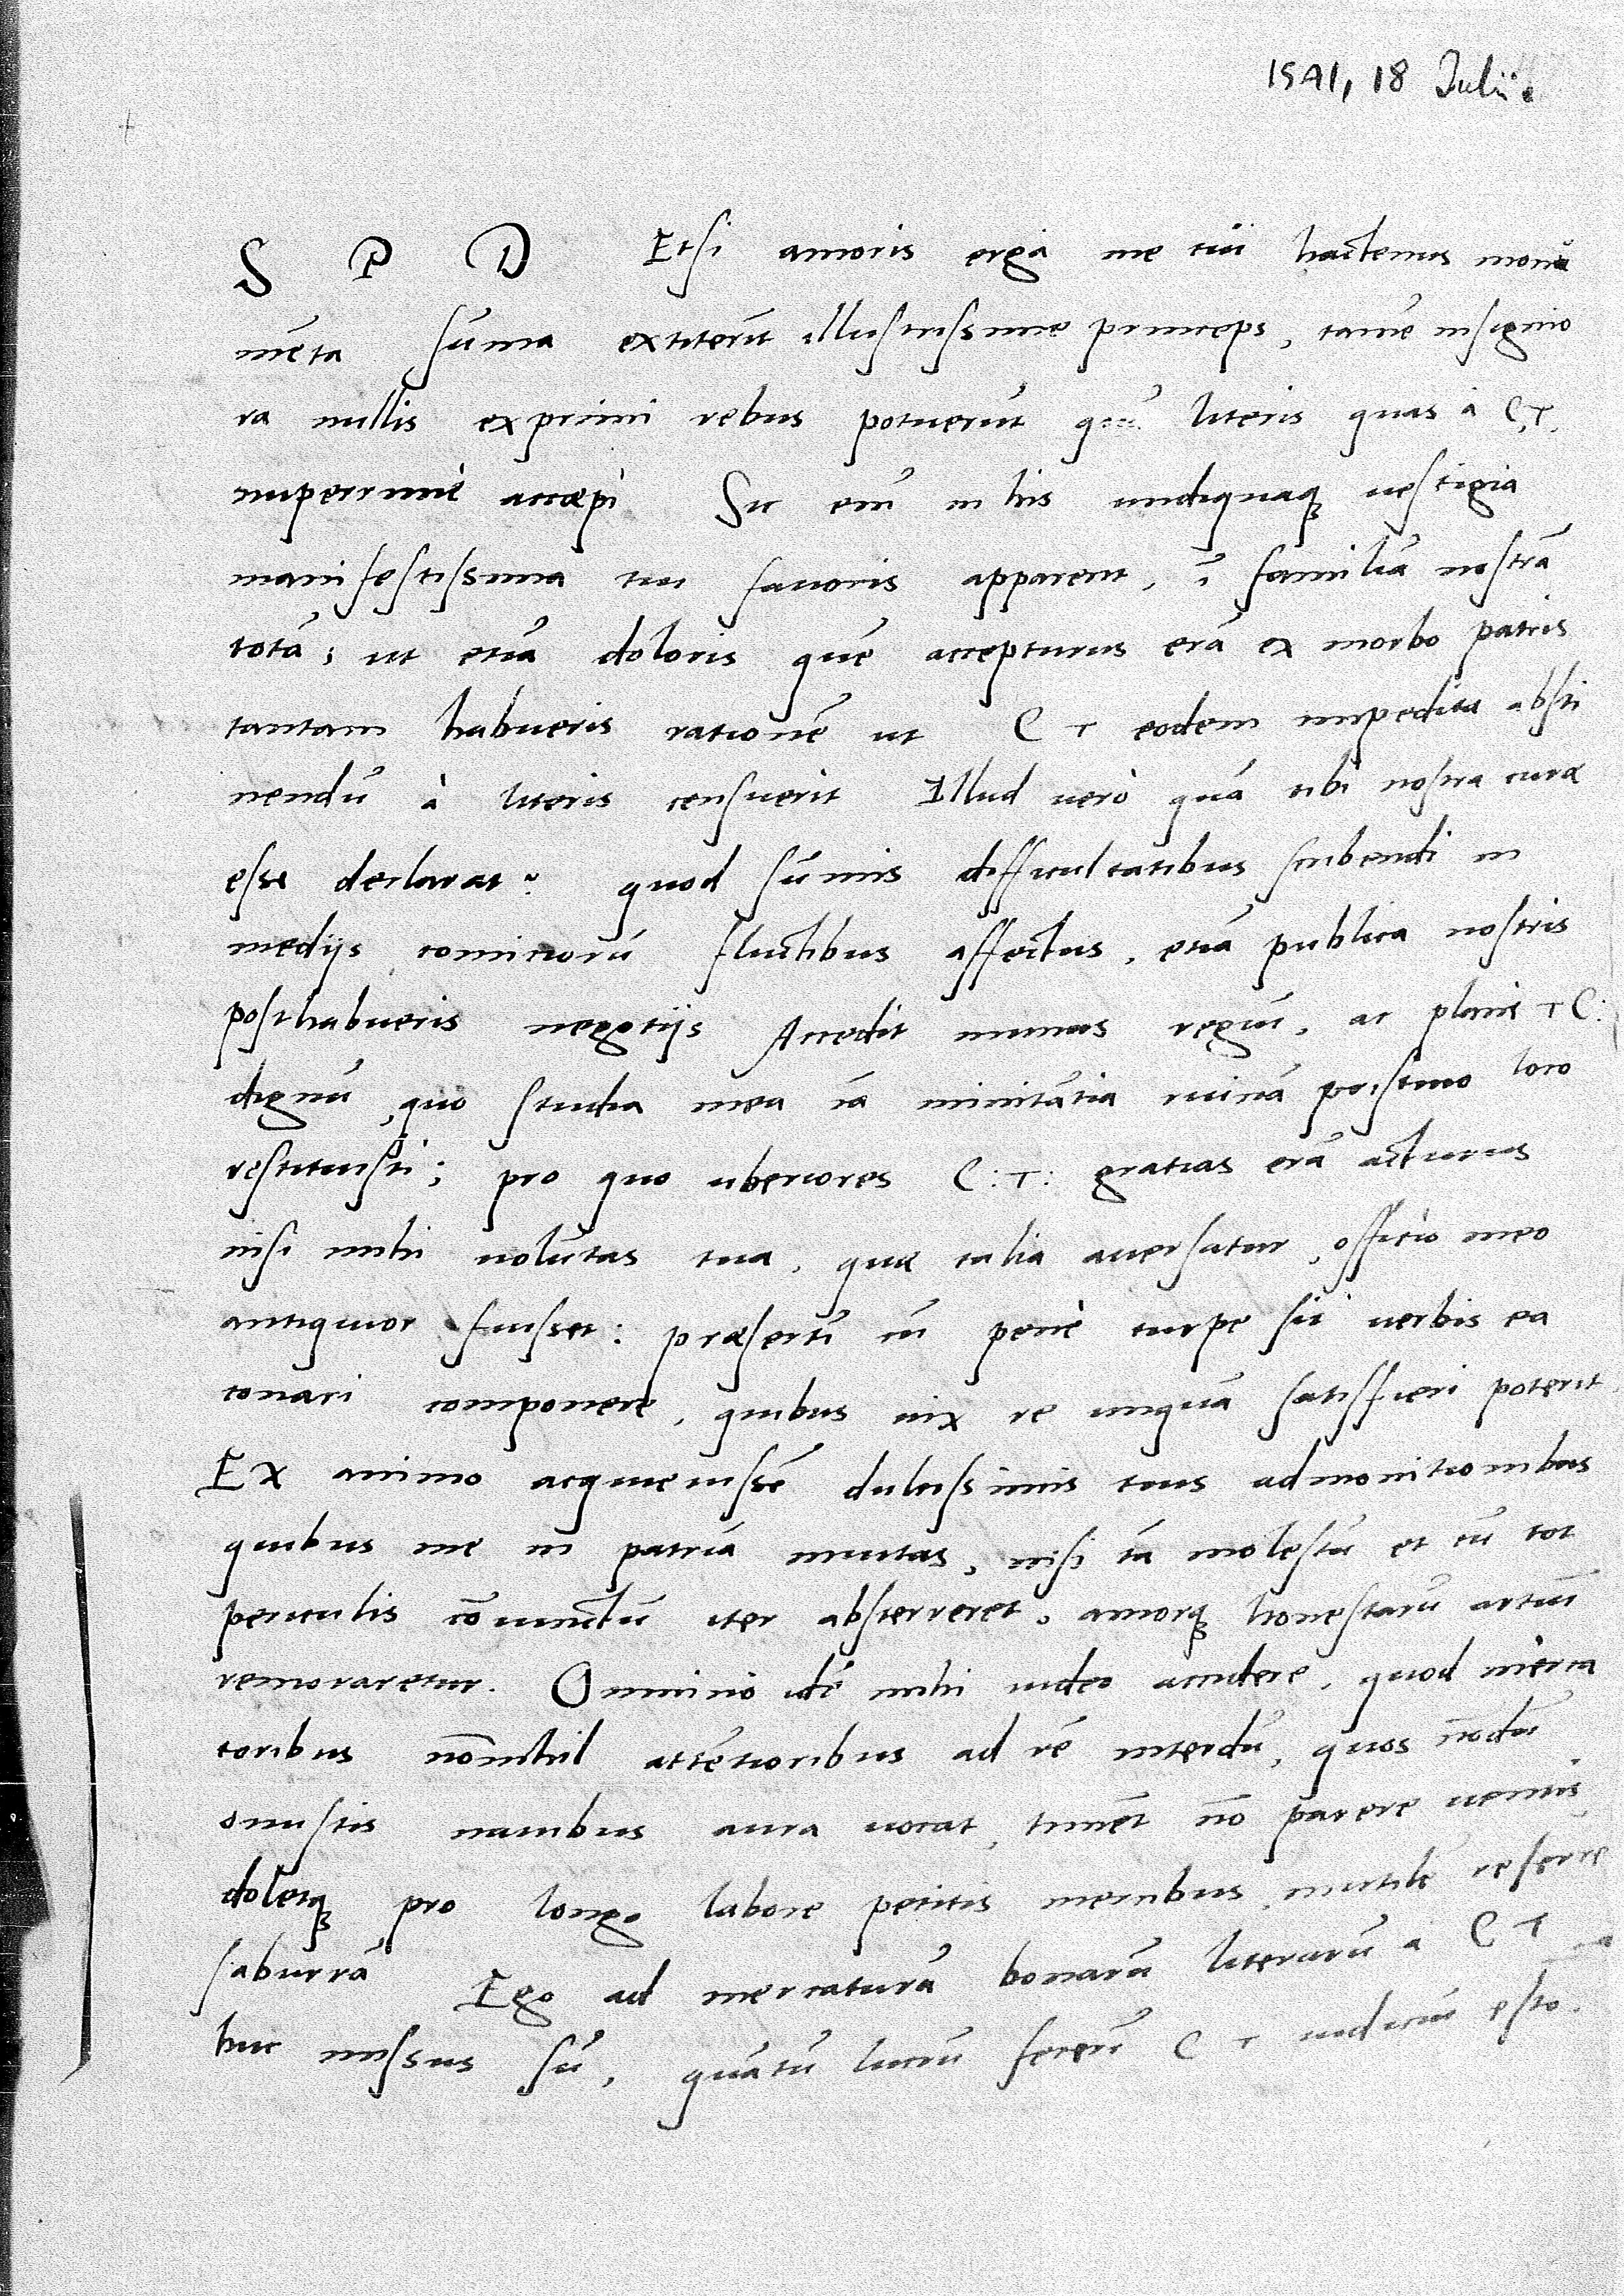 1541, 18 Julii.
S P D Etsi amoris erga me tui hactenus monu
mēta sūma extiterūt illustrissime princeps, tamē insignio
ra nullis exprimi rebus potuerūt literis quas à C.T.
nuperrimè accæpi Sic eni͂ in his undiquaqꝫ uestigia
manifestissima tui fauoris apparent, ī familiā nostrā
totā; ut etiā doloris quē accepturus erā ex morbo patris
tantam habueris rationē ut C T eodem impedita absti
nendū à literis censuerit Illud uerò quā tibi nostra curæ
esse declarat? quod sūmis difficultatibus scribendi in
medijs comitiorū fluctibus affectus, etiā publica nostris
posthabueris negotijs Accedit munus regiū, ac planè T C:
dignū, quo studia mea iā minitātia ruinā postimo loco
restituisti; pro quo uberiores C: T: gratias erā acturus
nisi mihi uolūtas tua, quæ talia auersatur, officio meo
antiquior fuisset: præsertī cū penè turpe sit uerbis ea
conari componere, quibus uix re unquā satisfieri poterit
Ex animo acquieuissē dulcissimis tuis admonitionibus
quibus me in patriā inuitas, nisi tā molestū et cū tot
periculis cōiunctū iter absterreret, amorqꝫ honestarū artiū
remoraretur. Omnino idē mihi uideo accidere, quod merca
toribus nōnihil attētioribus ad rē interdū, quos nōdū
onustis nauibus aura uocat, timēt nō parere uentis
doletqꝫ pro longo labore petitis mercibus inutilē referre
saburrā Ego ad mercaturā bonarū literarū a C T
huc missus sū, quātū lucrū ferem C T iudiciū esto.